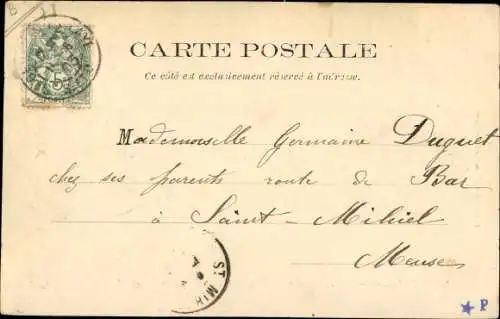 B
CARTE POSTALE
Ce côté est exclusivement réservé à l'adresse.
Mademoiselle Germaine Duguet
chez ses parents route de Bar
à Saint-Mihiel
Meuse
ST MIH
★ P